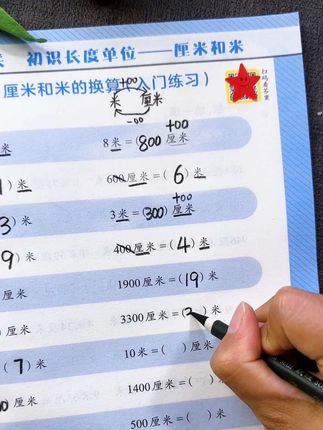 初识长度单位——厘米和米
厘米和米的换算(入门练习)
扫码看答案
+00
米 厘米
-00
+00
米 8米=(800厘米)
)米 600厘米=(6)米
+00
3)米 3米=(300)厘米
9)米 400厘米=(4)米
厘米 1900厘米=(19)米
)厘米 3300厘米=(3)米
(7)米 10米=( )厘米
厘米 1400厘米=( )米
500厘米=( )米